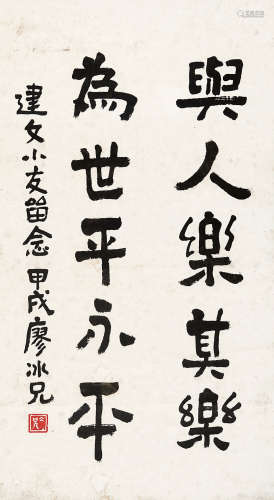 與人樂其樂
為世平永平
建文小友留念 甲戌廖冰兄